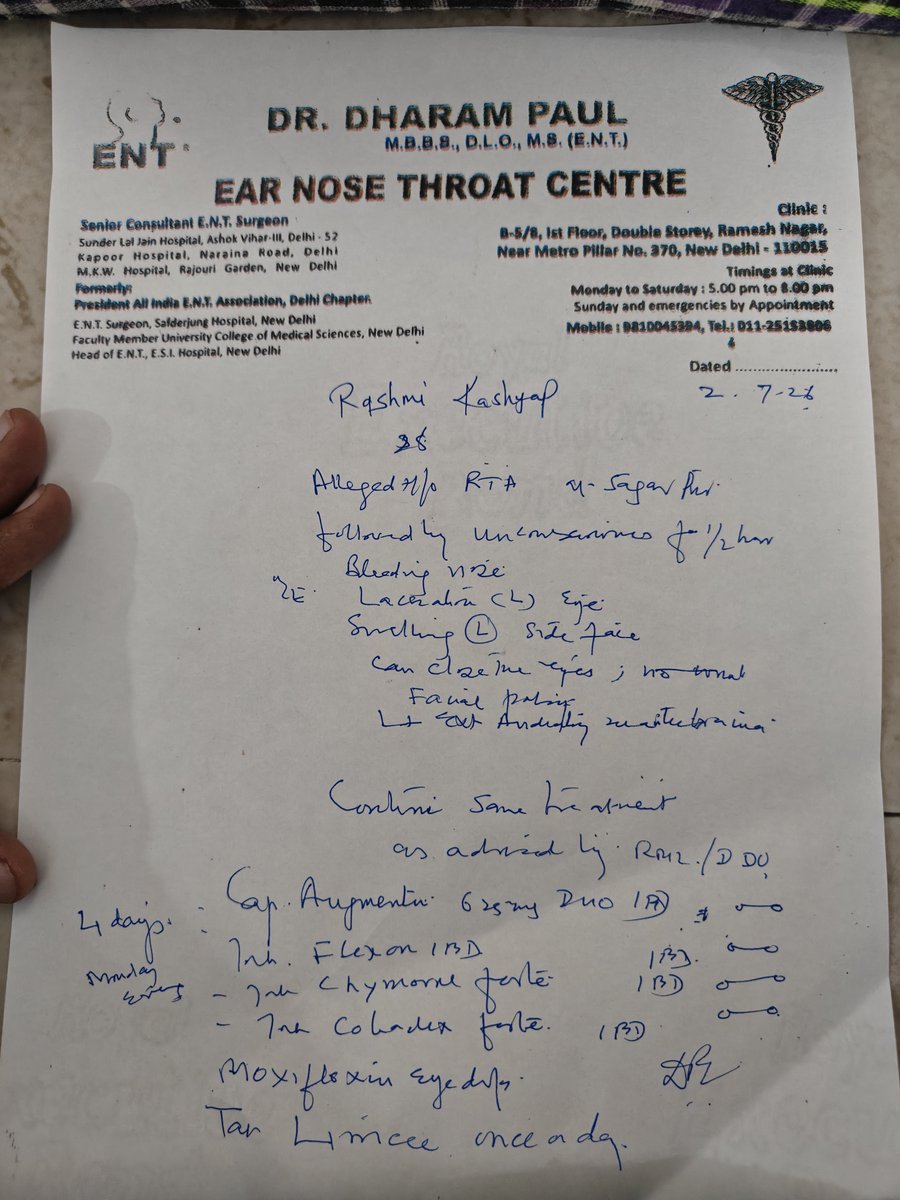 ENT
DR. DHARAM PAUL
M.B.B.S., D.L.O., M.S. (E.N.T.)
EAR NOSE THROAT CENTRE
Senior Consultant E.N.T. Surgeon
Sunder Lal Jain Hospital, Ashok Vihar-III, Delhi - 52
Kapoor Hospital, Naraina Road, Delhi
M.K.W. Hospital, Rajouri Garden, New Delhi
Formerly:
President All India E.N.T. Association, Delhi Chapter.
E.N.T. Surgeon, Safderjung Hospital, New Delhi
Faculty Member University College of Medical Sciences, New Delhi
Head of E.N.T., E.S.I. Hospital, New Delhi
Clinic :
B-5/8, Ist Floor, Double Storey, Ramesh Nagar,
Near Metro Pillar No. 370, New Delhi - 110015
Timings at Clinic
Monday to Saturday : 5.00 pm to 8.00 pm
Sunday and emergencies by Appointment
Mobile : 9810045394, Tel.: 011-25153906
Dated
2.7-26
Rashmi Kashyap
Alleged h/o RTA Sagar Pur
followed by unconsciousness for 1/2 hour
Bleeding nose
Laceration (L) Eye
Swelling (L) side face
Can close the eyes ;
Facial palsy
Lt Ext Auditory
Continue same treatment
as advised by RML /DDU
4 days.
Monday
Cap. Augmentin 625mg Duo 1BD
Tab. Flexon 1BD 1BD.
- Tab Chymoral forte 1BD
- Tab Cobadex forte. 1BD
Moxifloxin eye drops.
Tab Limcee once a day.